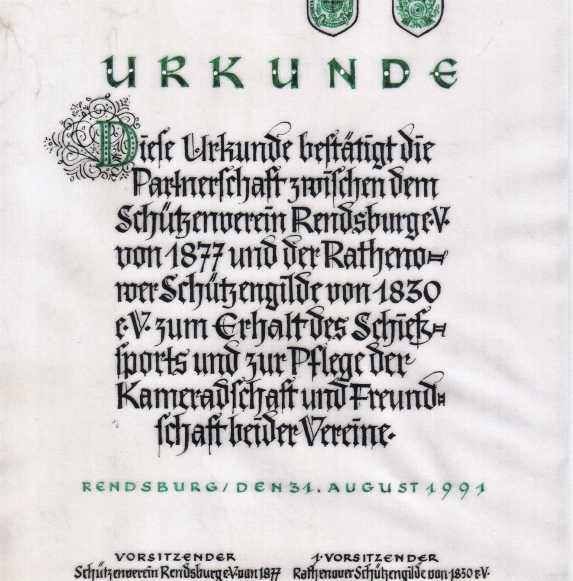 URKUNDE
Diese Urkunde bestätigt die
Partnerschaft zwischen dem
Schützenverein Rendsburg e.V.
von 1877 und der Ratheno=
wer Schützengilde von 1830
e.V. zum Erhalt des Schieß=
sports und zur Pflege der
Kameradschaft und Freund=
schaft beider Vereine.
RENDSBURG/DEN 31. AUGUST 1991
VORSITZENDER 1. VORSITZENDER
Schützenverein Rendsburg e.V. von 1877 Rathenower Schützengilde von 1830 e.V.